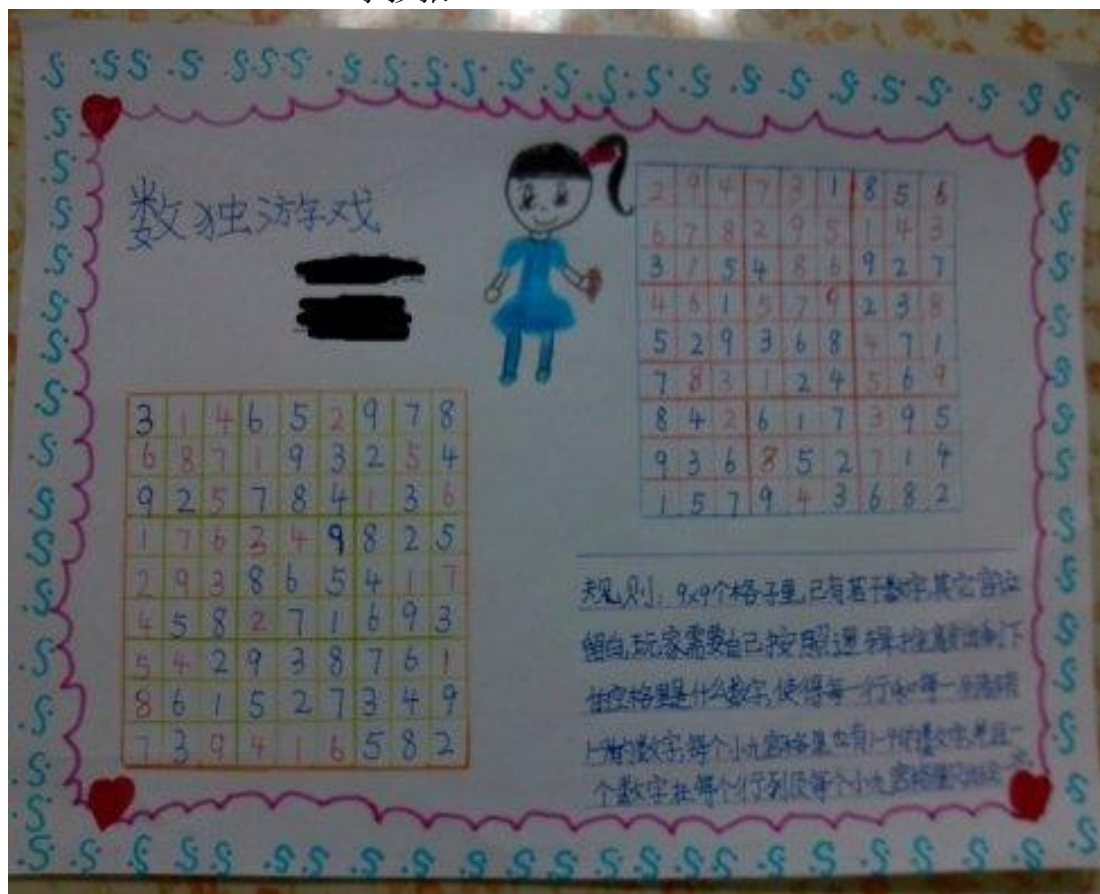 数独游戏
2 9 4 7 3 1 8 5 6
6 7 8 2 9 5 1 4 3
3 1 5 4 8 6 9 2 7
4 6 1 5 7 9 2 3 8
5 2 9 3 6 8 4 7 1
7 8 3 1 2 4 5 6 9
8 4 2 6 1 7 3 9 5
9 3 6 8 5 2 7 1 4
1 5 7 9 4 3 6 8 2
3 1 4 6 5 2 9 7 8
6 8 7 1 9 3 2 5 4
9 2 5 7 8 4 1 3 6
1 7 6 3 4 9 8 2 5
2 9 3 8 6 5 4 1 7
4 5 8 2 7 1 6 9 3
5 4 2 9 3 8 7 6 1
8 6 1 5 2 7 3 4 9
7 3 9 4 1 6 5 8 2
规则：9x9个格子里,已有若干数字,其它宫位
留白,玩家需要自己按照逻辑推敲出剩下
的空格里是什么数字,使得每一行和每一列都有
1-9的数字,每个小九宫格里也有1-9的数字,并且一
个数字在每个行列及每个小九宫格里